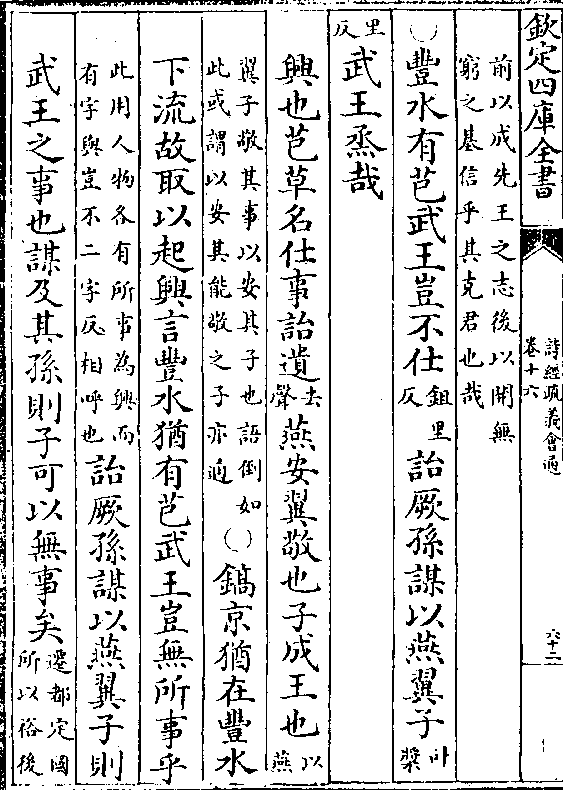 欽定四庫全書
詩經疏義會通
卷十六
六十二
前以成先王之志後以開無
窮之基信乎其克君也哉
○豐水有芑武王豈不仕鉏里反詒厥孫謀以燕翼子叶奨
里反武王烝哉
興也芑草名仕事詒遺去聲燕安翼敬也子成王也以燕
翼子敬其事以安其子也語倒如
此或謂以安其能敬之子亦通○鎬京猶在豐水
下流故取以起興言豐水猶有芑武王豈無所事乎
此用人物各有所事為興而
有字與豈不二字反相呼也詒厥孫謀以燕翼子則
武王之事也謀及其孫則子可以無事矣遷都定國
所以裕後